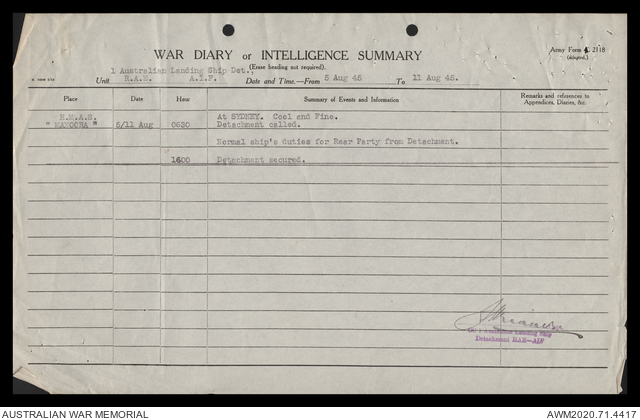 WAR DIARY or INTELLIGENCE SUMMARY
Army Form 2118
(adapted.)
(Erase heading not required).
1 Australian Landing Ship Det.,
Unit R.A.E. A.I.F. Date and Time.—From 5 Aug 45 To 11 Aug 45.
Place Date Hour Summary of Events and Information Remarks and references to
Appendices, Diaries, &c.
H.M.A.S. At SYDNEY. Cool and Fine.
"MANOORA" 5/11 Aug 0630 Detachment called.
Normal ship's duties for Rear Party from Detachment.
1600 Detachment secured.
1 Australian Landing Ship
Detachment RAE—AIF
AUSTRALIAN WAR MEMORIAL AWM2020.71.4417